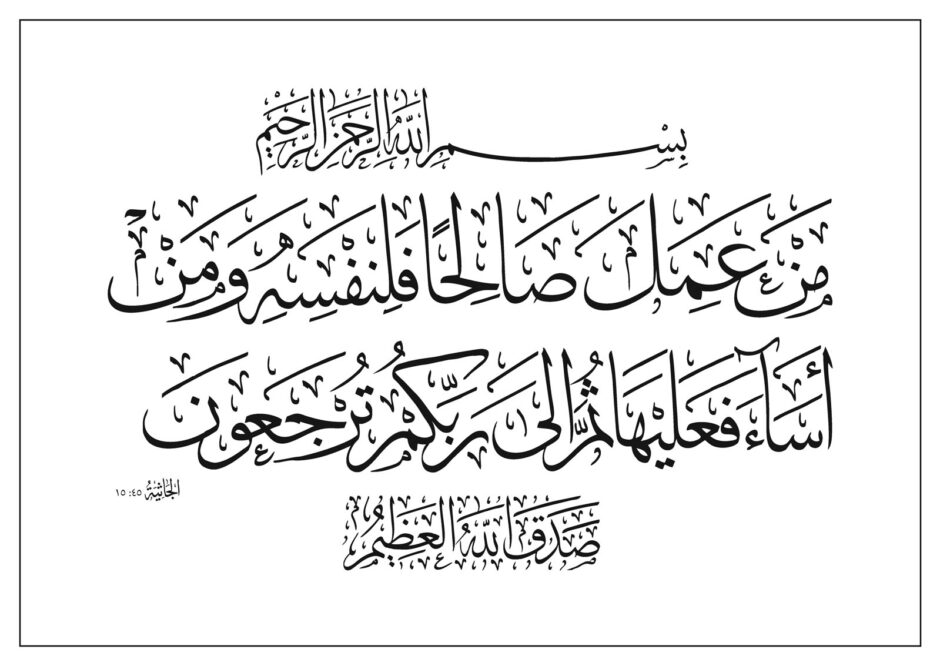 بِسْمِ اللهِ الرَّحْمٰنِ الرَّحِيْمِ
مَنْ عَمِلَ صَالِحًا فَلِنَفْسِهِ وَمَنْ
أَسَآءَ فَعَلَيْهَا ثُمَّ إِلَى رَبِّكُمْ تُرْجَعُونَ
الْجَاثِيَةُ ٤٥: ١٥
صَدَقَ اللهُ الْعَظِيْمُ